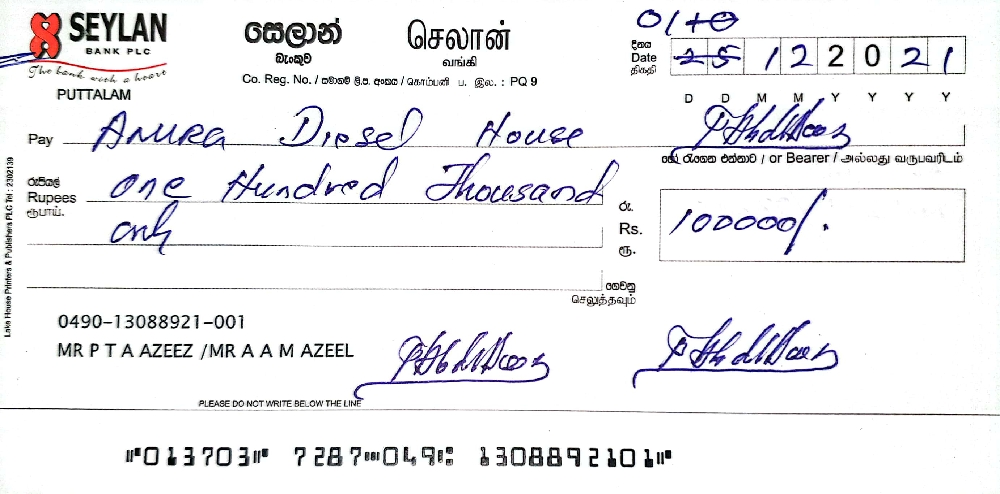 SEYLAN
BANK PLC
The bank with a heart
PUTTALAM
සෙලාන්
බැංකුව
செலான்
வங்கி
Co. Reg. No. / සමාගම් ලි.ප. අංකය / கொம்பனி ப. இல. : PQ 9
දිනය
Date
திகதி
01 10
25 12 2021
D D M M Y Y Y Y
Pay Anura Diesel House
හෝ රැගෙන එන්නාට / or Bearer / அல்லது வருபவரிடம்
රුපියල්
Rupees
ரூபாய்.
One Hundred Thousand
only
රු.
Rs.
ரூ.
100000/.
ගෙවනු
செலுத்தவும்
0490-13088921-001
MR P T A AZEEZ /MR A A M AZEEL
PLEASE DO NOT WRITE BELOW THE LINE
⑈013703⑈ 7287⑉049⑆ 1308892101⑈
Lake House Printers & Publishers PLC Tel : 2302139